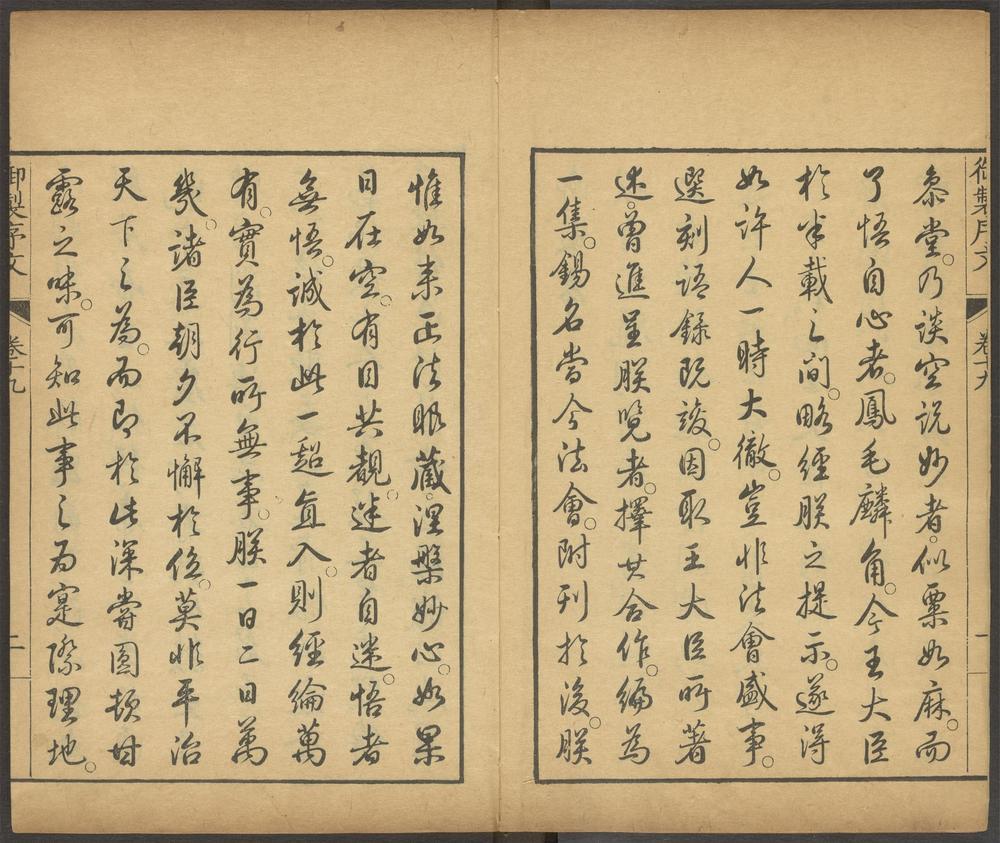 御製序文 卷十九 一
叅堂。乃談空說妙者。似粟如麻。而
了悟自心者。鳳毛麟角。今王大臣
於半載之間。略經朕之提示。遂得
如許人一時大徹。豈非法會盛事。
選刻語錄既竣。因取王大臣所著
述。曾進呈朕覽者。擇其合作。編為
一集。錫名當今法會。附刊於後。朕
惟如來正法眼藏。涅槃妙心。如杲
日在空。有目共覩。迷者自迷。悟者
無悟。誠於此一超直入。則經綸萬
有。實為行所無事。朕一日二日萬
幾。諸臣朝夕不懈於位。莫非平治
天下之為。而即於此深嘗圓頓甘
露之味。可知此事之為寔際理地。
御製序文 卷十九 二